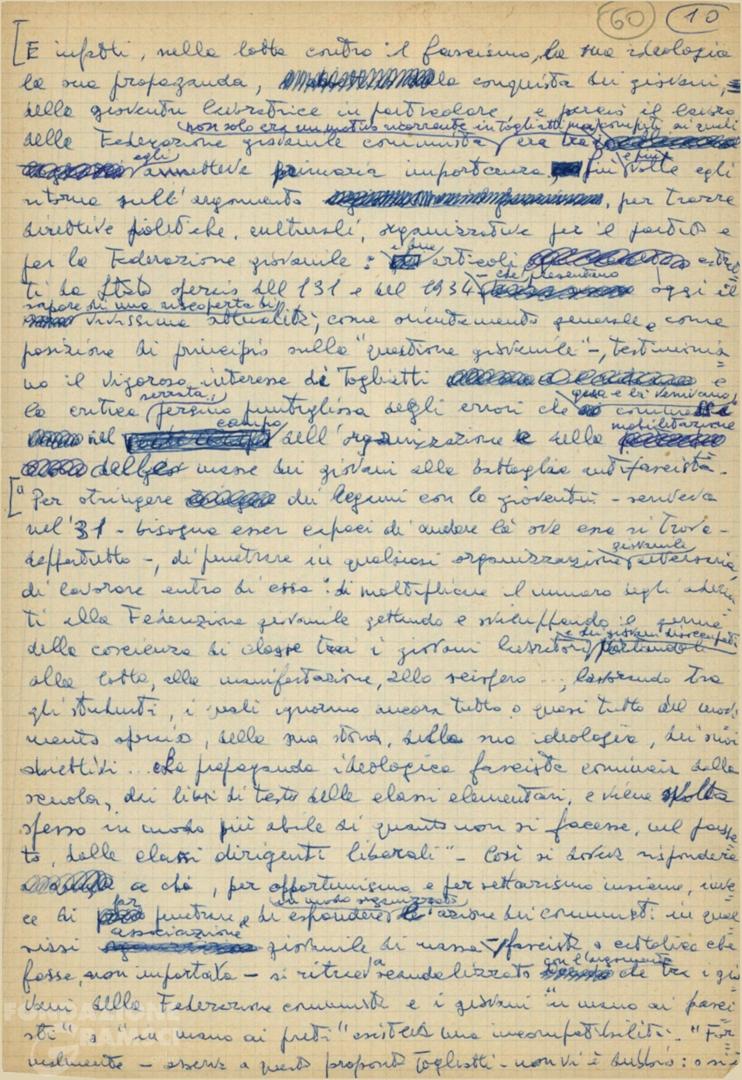 60 10
E infatti, nella lotta contro il fascismo, la sua ideologia
la sua propaganda, la conquista dei giovani,
della gioventù lavoratrice in particolare e perciò il lavoro
non solo era un motivo ricorrente in Togliatti, ma compiti ai quali
della Federazione giovanile comunista era tra
egli annetteva primaria importanza, e più volte egli
ritorna sull'argomento, per trarre
direttive politiche, culturali, organizzative per il partito e
per la Federazione giovanile: i due articoli
ti da Stato operaio del '31 e del 1934 - che presentano oggi il
sapore di una riscoperta di
vivissima attualità, come orientamento generale e come
posizione di principio sulla "questione giovanile" -, testimonia=
no il vigoroso interesse di Togliatti e
la critica serrata, persino puntigliosa degli errori che qua e là venivano
nel campo dell'organizzazione e della mobilitazione
delle masse dei giovani alla battaglia antifascista.
"Per stringere dei legami con la gioventù - scriveva
nel '31 - bisogna esser capaci di andare là ove essa si trova -
dappertutto -, di penetrare in qualsiasi organizzazione giovanile avversaria,
di lavorare entro di essa: di moltiplicare il numero degli aderen
ti alla Federazione giovanile gettando e sviluppando il germe
della coscienza di classe tra i giovani lavoratori, dei giovani disoccupati portandoli
alla lotta, alla manifestazione, allo sciopero ..., lavorando tra
gli studenti, i quali ignorano ancora tutto o quasi tutto del movi=
mento operaio, della sua storia, della sua ideologia, dei suoi
obiettivi ... La propaganda ideologica fascista comincia dalla
scuola, dai libri di testo delle classi elementari, e viene svolta
spesso in modo più abile di quanto non si facesse, nel passa=
to, dalle classi dirigenti liberali" - Così si doveva rispondere
a chi, per opportunismo e per settarismo insieme, inve=
ce di penetrare e di espandere in modo organizzato l'azione dei comunisti in qual
siasi associazione giovanile di massa - fascista o cattolica che
fosse, non importata - si ritirava scandalizzato con l'argomento che tra i gio
vani della Federazione comunista e i giovani "in mano ai fasci
sti" o "in mano ai preti" esisteva una incompatibilità. "For
malmente - osserva a questo proposito Togliatti - non vi è dubbio: o si è
FONDAZIONE
GRAMSCI